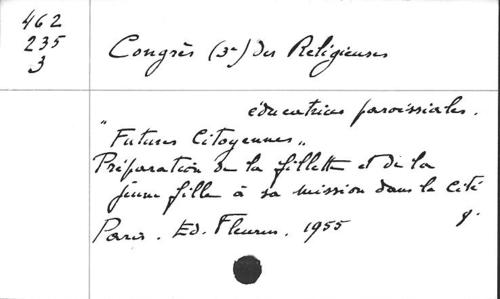 462
235
3
Congrès (3e) des Religieuses
éducatrices paroissiales.
"Futures Citoyennes"
Préparation de la fillette et de la
jeune fille à sa mission dans la Cité
Paris. Ed. Fleurus. 1955